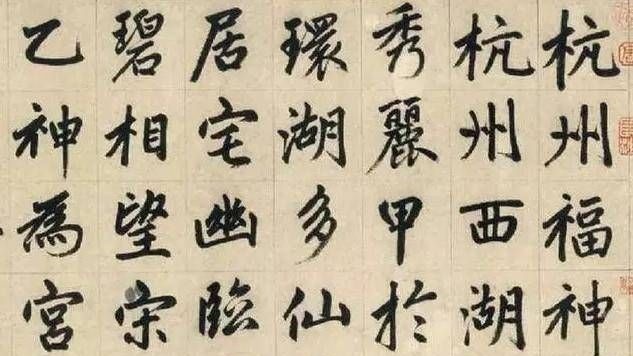 杭州福神
杭州西湖
秀麗甲於
環湖多仙
居宅幽臨
碧相望宋
乙神為宮